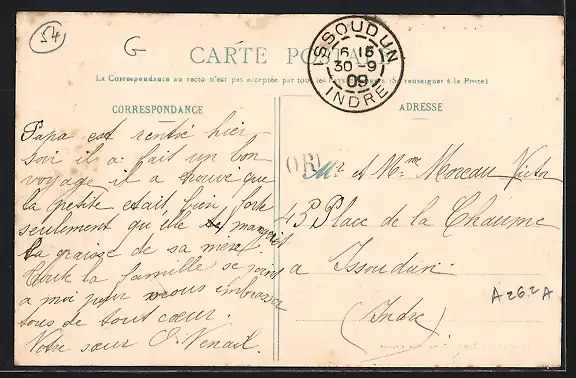 54
G
CARTE POSTALE
ISSOUDUN
16 15
30-9
09
INDRE
La Correspondance au recto n'est pas acceptée par tous les pays étrangers (Se renseigner à la Poste)
CORRESPONDANCE
ADRESSE
Papa est rentré hier
soir il a fait un bon
voyage il a trouvé que
la petite était bien, forte
seulement qu'elle mangait
la graisse de sa mere.
Toute la famille se joint
a moi pour vous embrasser
tous de tout cœur.
Votre sœur
OR
Mr et Mme Moreau Victor
43 Place de la Chaume
a Issoudun
(Indre)
A262A